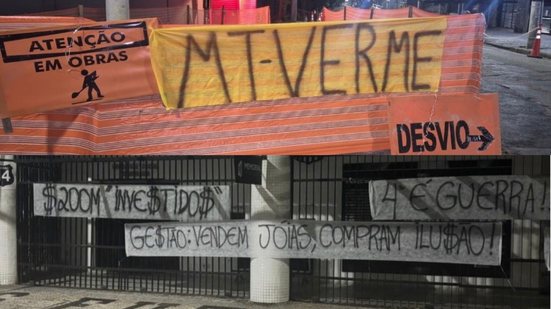 ATENÇÃO
EM OBRAS
MT-VERME
DESVIO
4
$200M "INVE$TIDO$"
4 É GUERRA!
GE$TÃO: VENDEM JÓIAS, COMPRAM ILU$ÃO!